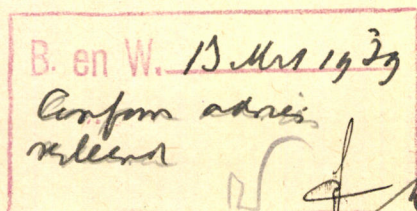 B. en W. 13 Mrt 1939
Conform advies
verleend